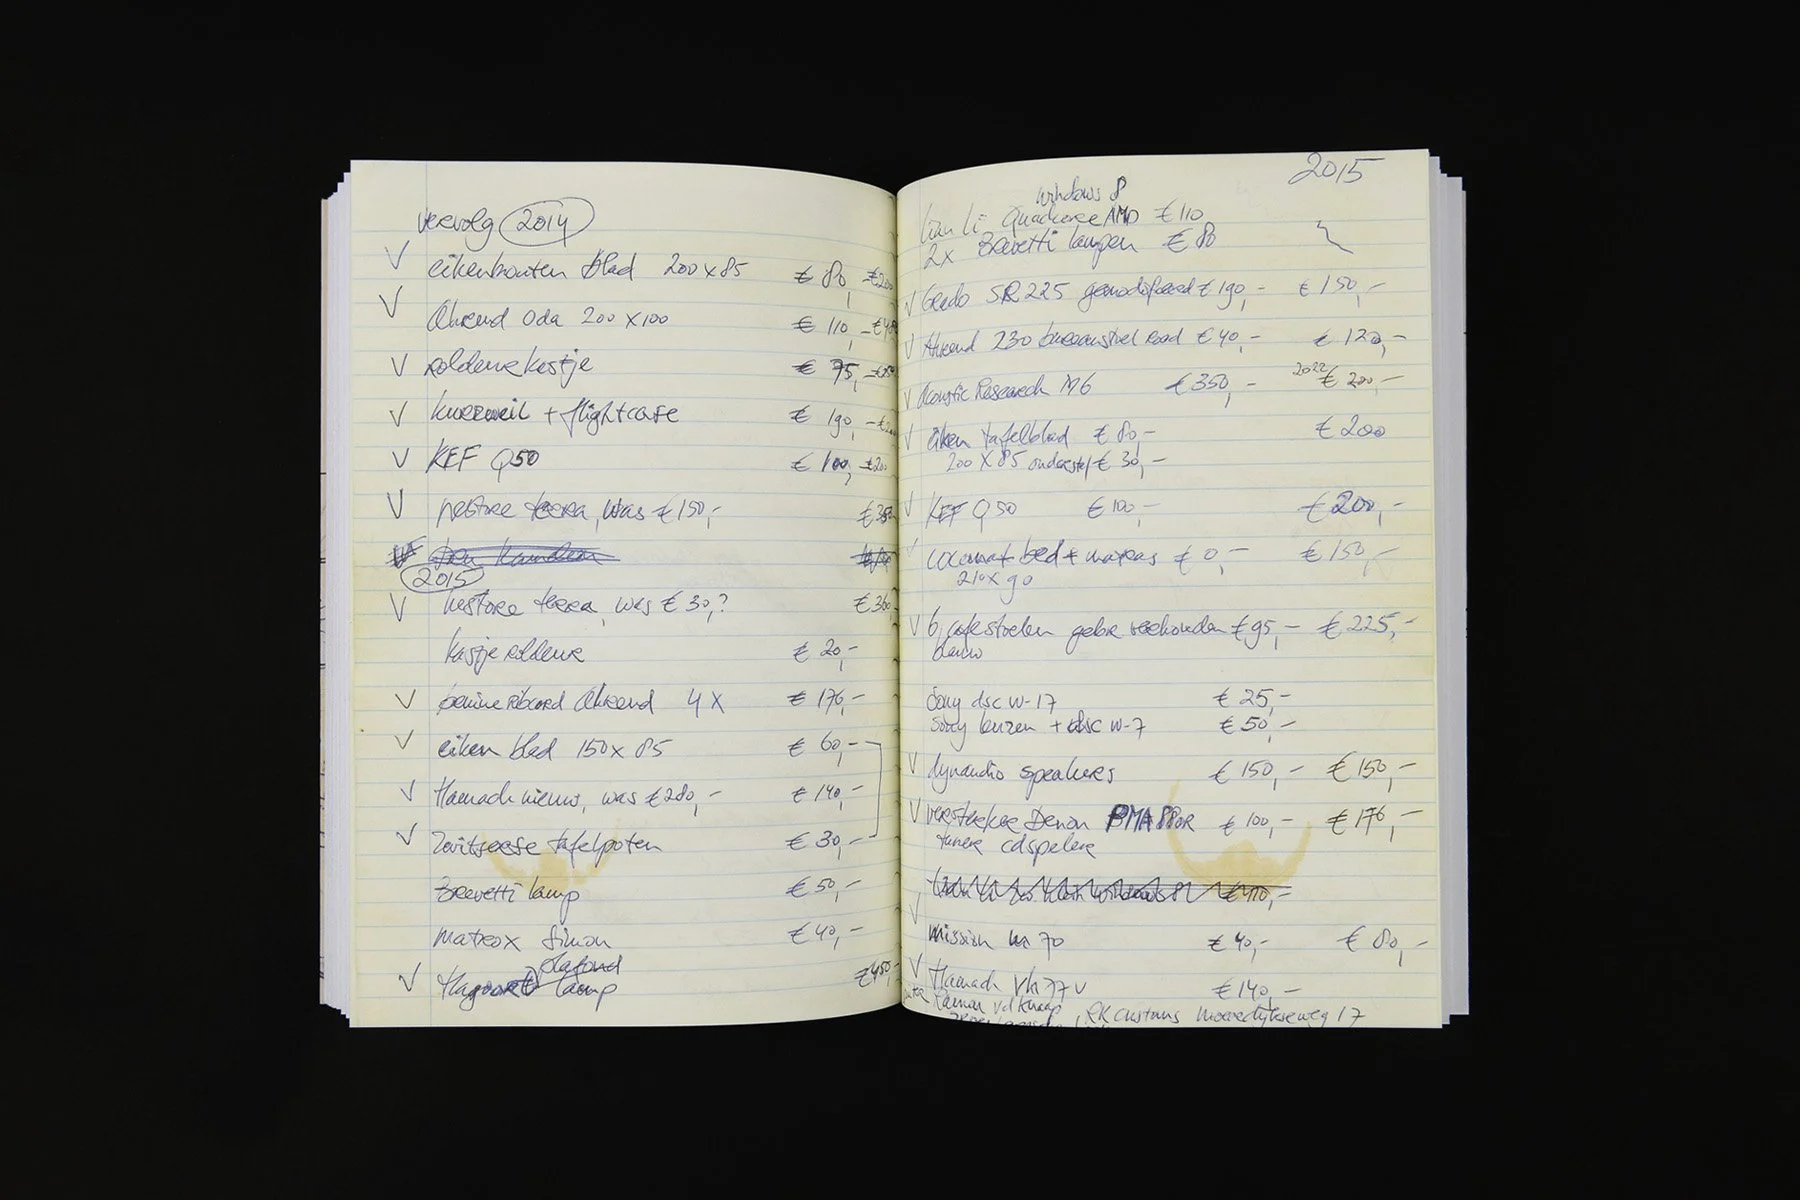 vervolg 2014
V eikenhouten blad 200 x 85 € 80,- €200
V Ahrend Oda 200 x 100 € 110,-
V roldeurkastje € 75,-
V kurzweil + flightcase € 190,-
V KEF Q50 € 100,- €200
V restore terra, was € 150,-
2015
V restore terra, was € 30,? €360
kastje roldeur € 20,-
V Ahrend 4 X € 176,-
V eiken blad 150 x 85 € 60,-
V nieuw, was € 280,- € 140,-
V Zwitserse tafelpoten € 30,-
Brevetti lamp € 50,-
matrox Simon € 40,-
plafond
V lamp €450,-
2015
windows 8
Lian Li Quadcore AMD € 110
2x Brevetti lampen € 80
V Grado SR 225 gemodificeerd € 190,- € 150,-
V Ahrend 230 bureaustoel rood € 40,- € 120,-
V Acoustic Research M6 € 350,- 2022 € 200,-
V eiken tafelblad € 80,- € 200
200 X 85 onderstel € 30,-
V KEF Q50 € 100,- € 200,-
bed + matras € 0,- € 150,-
210 x 90
V 6 stoelen gebr € 95,- € 225,-
blauw
Sony dsc W-17 € 25,-
Sony lenzen + dsc W-7 € 50,-
V dynaudio speakers € 150,- € 150,-
V versterker Denon PMA 880R € 100,- € 176,-
tuner cdspeler
V
mission m 70 € 40,- € 80,-
V € 140,-
RK customs Moerdijkseweg 17